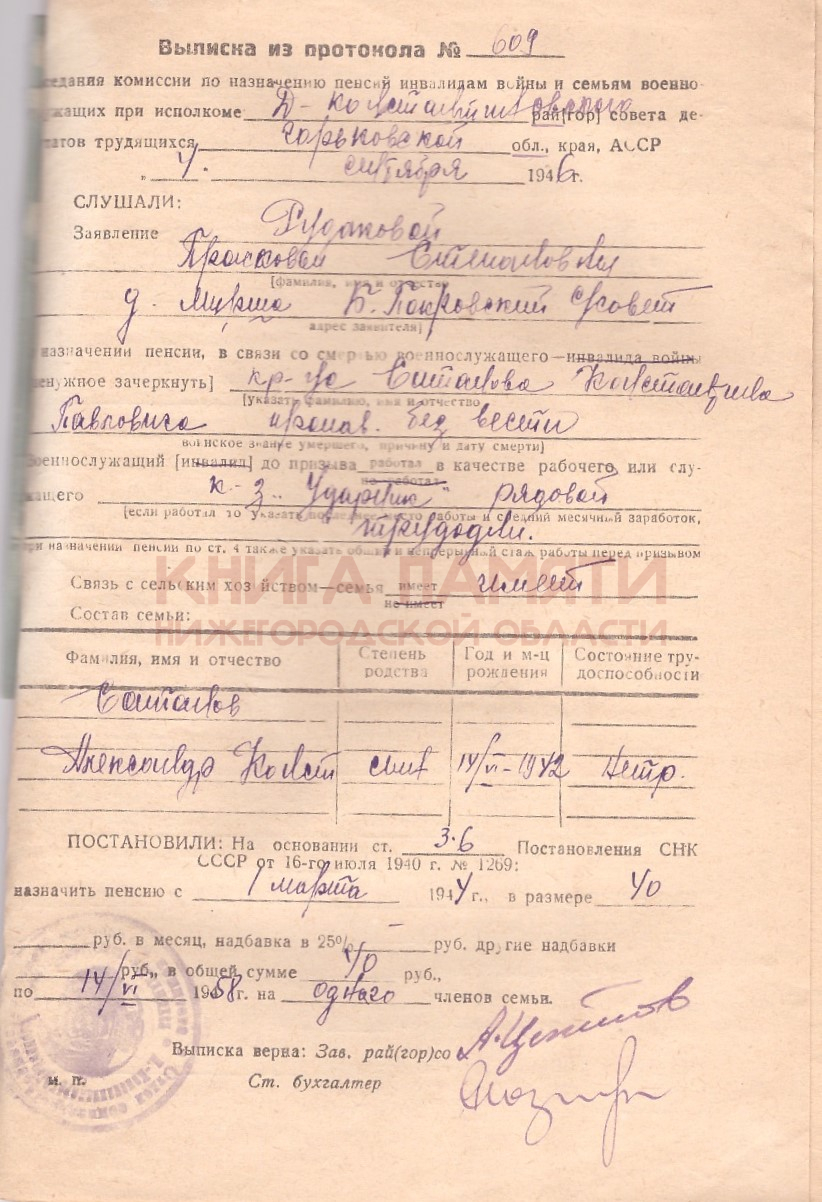 Выписка из протокола № 609
седания комиссии по назначению пенсий инвалидам войны и семьям военно-
жащих при исполкоме Д-Константиновского рай[гор] совета де-
татов трудящихся Горьковской обл., края, АССР
„ 4. сентября 1946 г.
СЛУШАЛИ:
Заявление Рудаковой
Прасковьи Степановны
[фамилия, имя и отчество
д. Мигша Б. Покровский с/совет
адрес заявителя]
назначении пенсии, в связи со смертью военнослужащего—инвалида войны
енужное зачеркнуть] кр-ца Степанова Константина
[указать фамилию, имя и отчество
Павловича пропав. без вести
воинское звание умершего, причину и дату смерти]
Военнослужащий [инвалид] до призыва работал в качестве рабочего или слу-
не работал
жащего к-з „Ударник" рядовой
[если работал то указать последнее место работы и средний месячный заработок,
трудодни.
при назначении пенсии по ст. 4 также указать общий и непрерывный стаж работы перед призывом
Связь с сельским хозяйством—семья имеет имеет
не имеет
КНИГА ПАМЯТИ
Состав семьи:
НИЖЕГОРОДСКОЙ ОБЛАСТИ
Фамилия, имя и отчество Степень родства Год и м-ц рождения Состояние тру-доспособности
Степанов
Александр Конст сын 14/VI-1942 Нетр.
ПОСТАНОВИЛИ: На основании ст. 3.6 Постановления СНК
СССР от 16-го июля 1940 г. № 1269:
назначить пенсию с 1 марта 1944 г., в размере 40
руб. в месяц, надбавка в 25% – руб. другие надбавки
руб., в общей сумме 40 руб.,
по 14/VI 1958 г. на одного членов семьи.
Выписка верна: Зав. рай(гор)со
м. п. Ст. бухгалтер